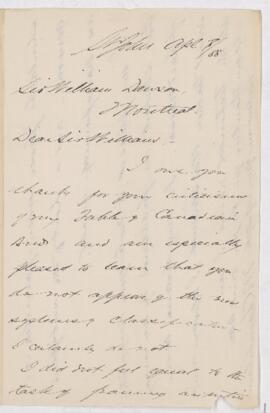 St John Apl 9/88
Sir William Dawson,
Montreal.
Dear Sir William:-
I owe you
thanks for your criticisms
of my Table of Canadian
birds and am especially
pleased to learn that you
do not approve of the new
systems of classification.
I certainly do not.
I did not feel equal to the
task of framing another